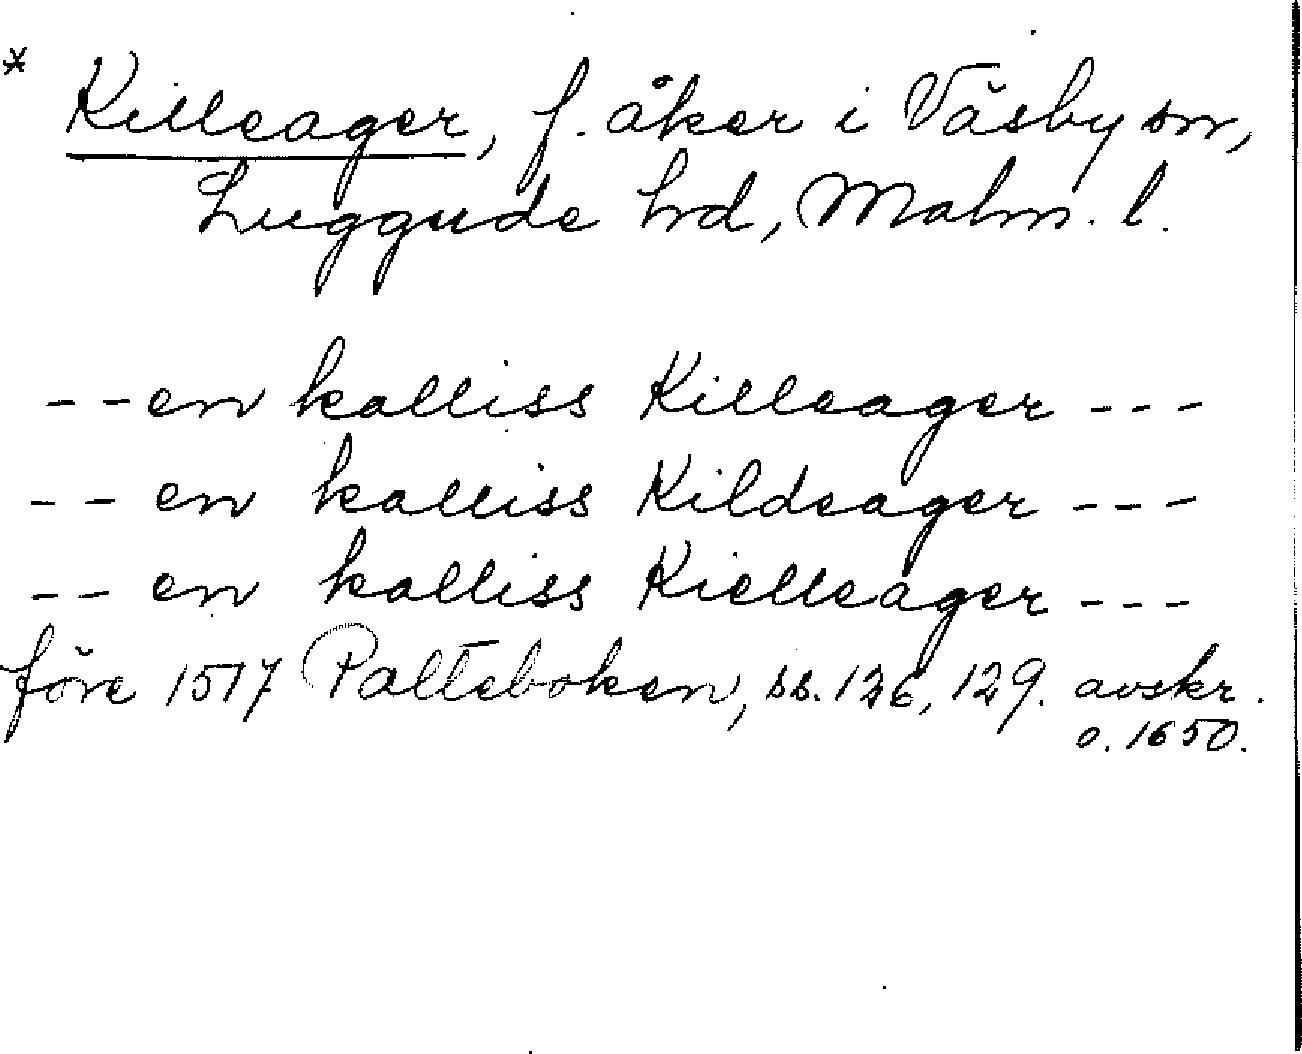 * Killeager, f. åker i Väsby sn,
Luggude hd, Malm. l.
-- en kalliss Killeager ---
-- en kalliss Kildeager ---
-- en kalliss Kielleager ---
före 1517 Palteboken, ss. 126, 129. avskr.
o. 1650.